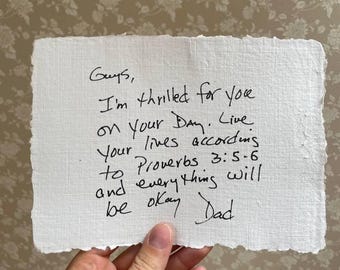 Guys,
I'm thrilled for you
on your Day. Live
your lives according
to Proverbs 3:5-6
and everything will
be okay Dad